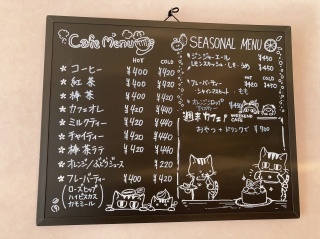 Cafe Menu
HOT COLD
コーヒー ¥400 ¥420
紅茶 ¥400 ¥420
棒茶 ¥400 ¥420
カフェオレ ¥420 ¥440
ミルクティー ¥420 ¥440
チャイティー ¥420 ¥440
棒茶ラテ ¥420 ¥440
オレンジ/ぶどうジュース ¥220
フレーバーティー ¥400 ¥420
(ローズヒップ
ハイビスカス
カモミール)
SEASONAL MENU
HOT COLD
ジンジャーエール ¥450
レモンスカッシュ・レモネード ¥450
フレーバーティー
シャインマスカット モモ
オレンジシロップ
週末カフェ WEEKEND CAFE
おやつ+ドリンクで ¥700